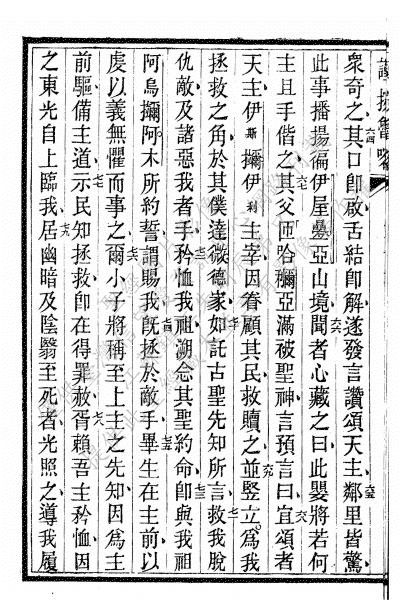 眾奇之其口卽啟舌結卽解遂發言讚頌天主鄰里皆驚
此事播揚徧伊屋疊亞山境聞者心藏之曰此嬰將若何
主且手偕之其父匝哈穪亞滿被聖神言預言曰宜頌者
天主伊斯擟伊利主宰因眷顧其民救贖之並竪立爲我
拯救之角於其僕達微德家如託古聖先知所言救我脫
仇敵及諸惡我者手矜恤我祖溯念其聖約命卽與我祖
阿烏擟阿木所約誓謂賜我旣拯於敵手畢生在主前以
虔以義無懼而事之爾小子將稱至上主之先知因爲主
前驅備主道示民知拯救卽在得罪赦胥賴吾主矜恤因
之東光自上臨我居幽暗及陰翳至死者光照之導我履